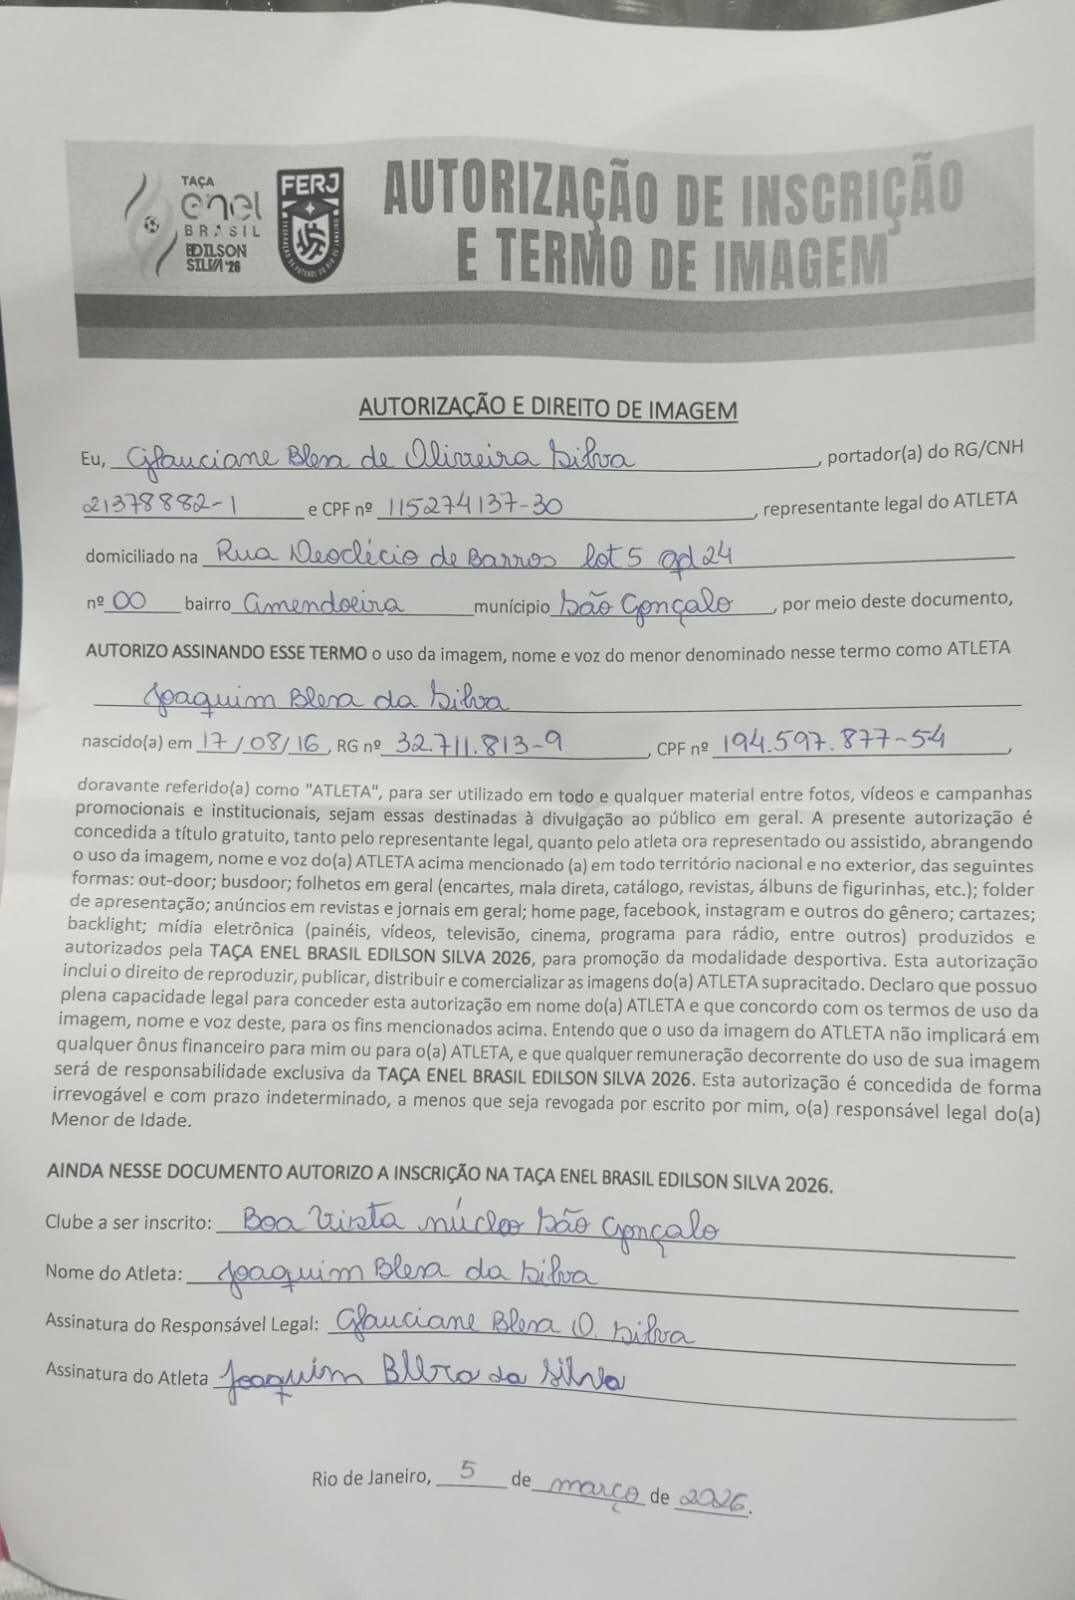 TAÇA
enel
BRASIL
EDILSON
SILVA '26
FERJ
AUTORIZAÇÃO DE INSCRIÇÃO
E TERMO DE IMAGEM
AUTORIZAÇÃO E DIREITO DE IMAGEM
Eu, Glauciane Blera de Oliveira Silva, portador(a) do RG/CNH
21378882-1 e CPF nº 115274137-30, representante legal do ATLETA
domiciliado na Rua Deoclécio de Barros lot 5 qd 24
nº 00 bairro Amendoeira munícipio São Gonçalo, por meio deste documento,
AUTORIZO ASSINANDO ESSE TERMO o uso da imagem, nome e voz do menor denominado nesse termo como ATLETA
Joaquim Blera da Silva
nascido(a) em 17/08/16, RG nº 32.711.813-9, CPF nº 194.597.877-54,
doravante referido(a) como "ATLETA", para ser utilizado em todo e qualquer material entre fotos, vídeos e campanhas
promocionais e institucionais, sejam essas destinadas à divulgação ao público em geral. A presente autorização é
concedida a título gratuito, tanto pelo representante legal, quanto pelo atleta ora representado ou assistido, abrangendo
o uso da imagem, nome e voz do(a) ATLETA acima mencionado (a) em todo território nacional e no exterior, das seguintes
formas: out-door; busdoor; folhetos em geral (encartes, mala direta, catálogo, revistas, álbuns de figurinhas, etc.); folder
de apresentação; anúncios em revistas e jornais em geral; home page, facebook, instagram e outros do gênero; cartazes;
backlight; mídia eletrônica (painéis, vídeos, televisão, cinema, programa para rádio, entre outros) produzidos e
autorizados pela TAÇA ENEL BRASIL EDILSON SILVA 2026, para promoção da modalidade desportiva. Esta autorização
inclui o direito de reproduzir, publicar, distribuir e comercializar as imagens do(a) ATLETA supracitado. Declaro que possuo
plena capacidade legal para conceder esta autorização em nome do(a) ATLETA e que concordo com os termos de uso da
imagem, nome e voz deste, para os fins mencionados acima. Entendo que o uso da imagem do ATLETA não implicará em
qualquer ônus financeiro para mim ou para o(a) ATLETA, e que qualquer remuneração decorrente do uso de sua imagem
será de responsabilidade exclusiva da TAÇA ENEL BRASIL EDILSON SILVA 2026. Esta autorização é concedida de forma
irrevogável e com prazo indeterminado, a menos que seja revogada por escrito por mim, o(a) responsável legal do(a)
Menor de Idade.
AINDA NESSE DOCUMENTO AUTORIZO A INSCRIÇÃO NA TAÇA ENEL BRASIL EDILSON SILVA 2026.
Clube a ser inscrito: Boa Vista núcleo São Gonçalo
Nome do Atleta: Joaquim Blera da Silva
Assinatura do Responsável Legal: Glauciane Blera O. Silva
Assinatura do Atleta Joaquim Blera da Silva
Rio de Janeiro, 5 de março de 2026.